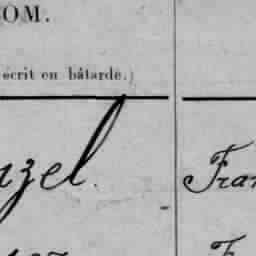 OM.
écrit en bâtarde.)
nzel. Fran